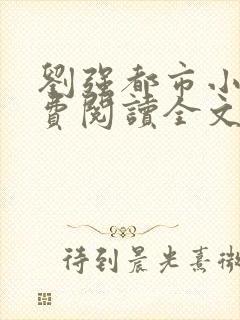 劉強都市小
費閱讀全文
待到晨光熹微